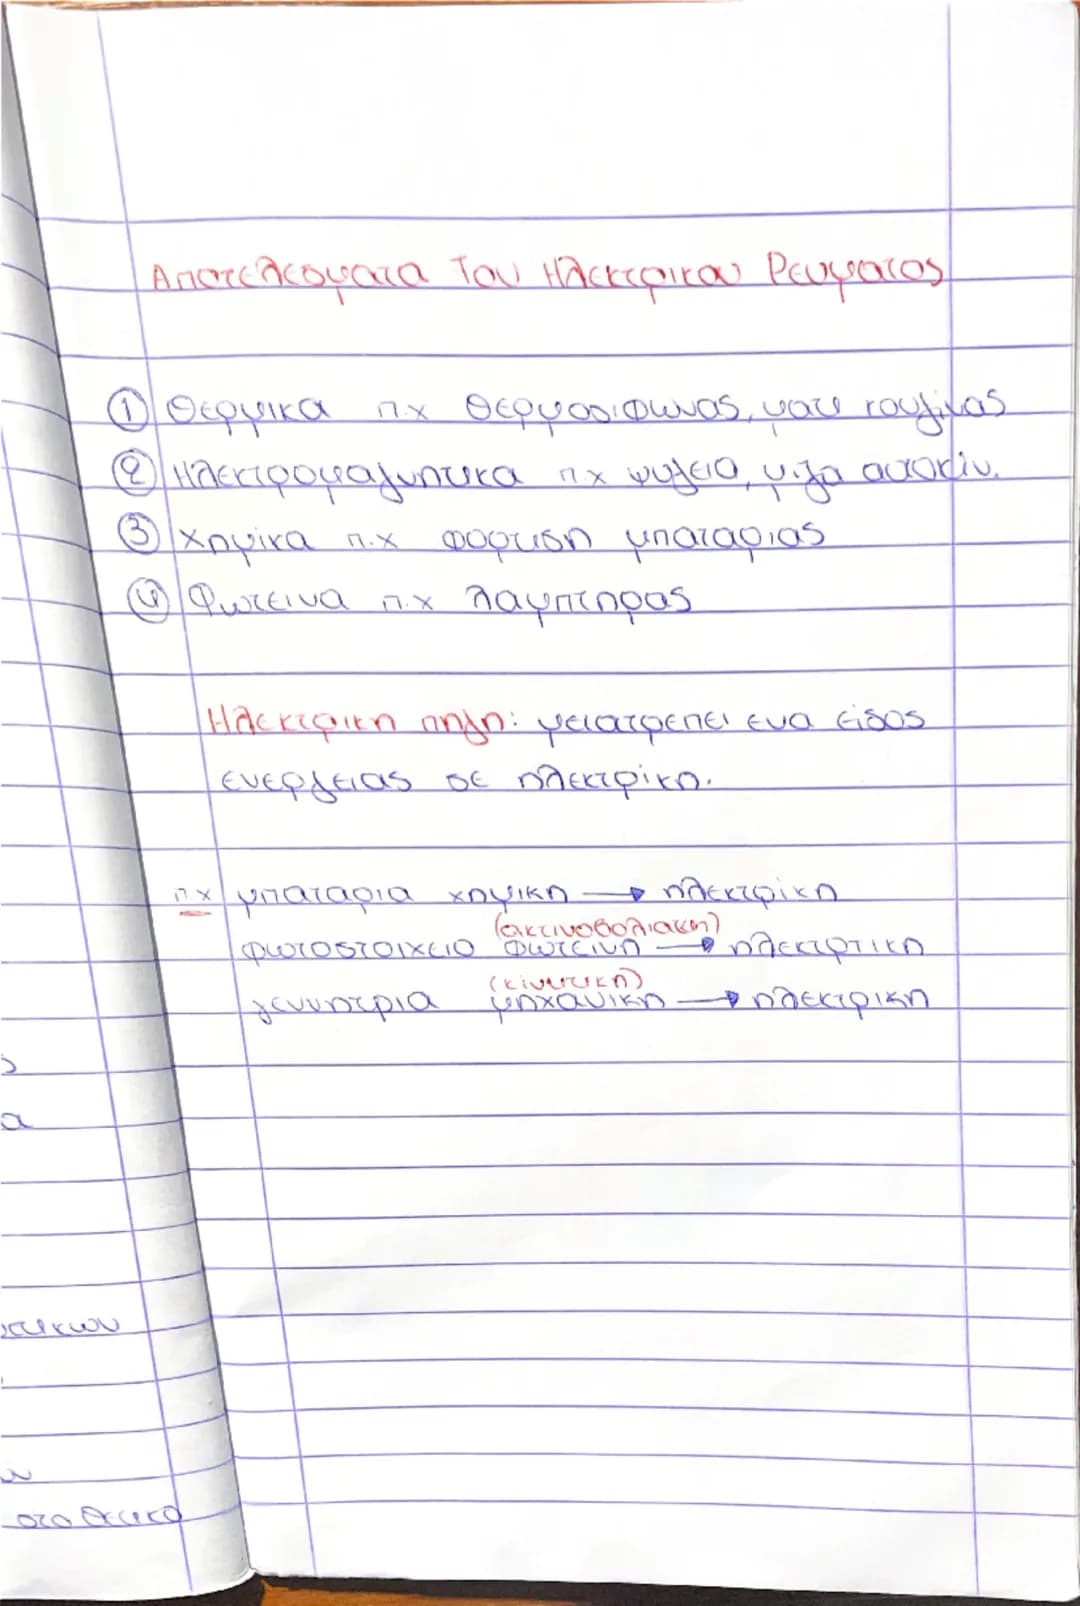 Αποτελεσματα Του Ηλεκτρικου Ρευματος
① Θερμικα π.χ Θερμοσιφωνας, ματι κουζινας
② Ηλεκτρομαγνητικα π.χ ψυγειο, μιζα αυτοκιν.
③ Χημικα π.χ φορτιση μπαταριας
④ Φωτεινα π.χ λαμπτηρας
Ηλεκτρικη πηγη: μετατρεπει ενα ειδος
ενεργειας σε ηλεκτρικη.
π.χ μπαταρια χημικη → ηλεκτρικη
(ακτινοβολιακη)
φωτοστοιχειο φωτεινη → ηλεκτρτικη
(κινητικη)
γεννητρια μηχανικη → ηλεκτρικη
α